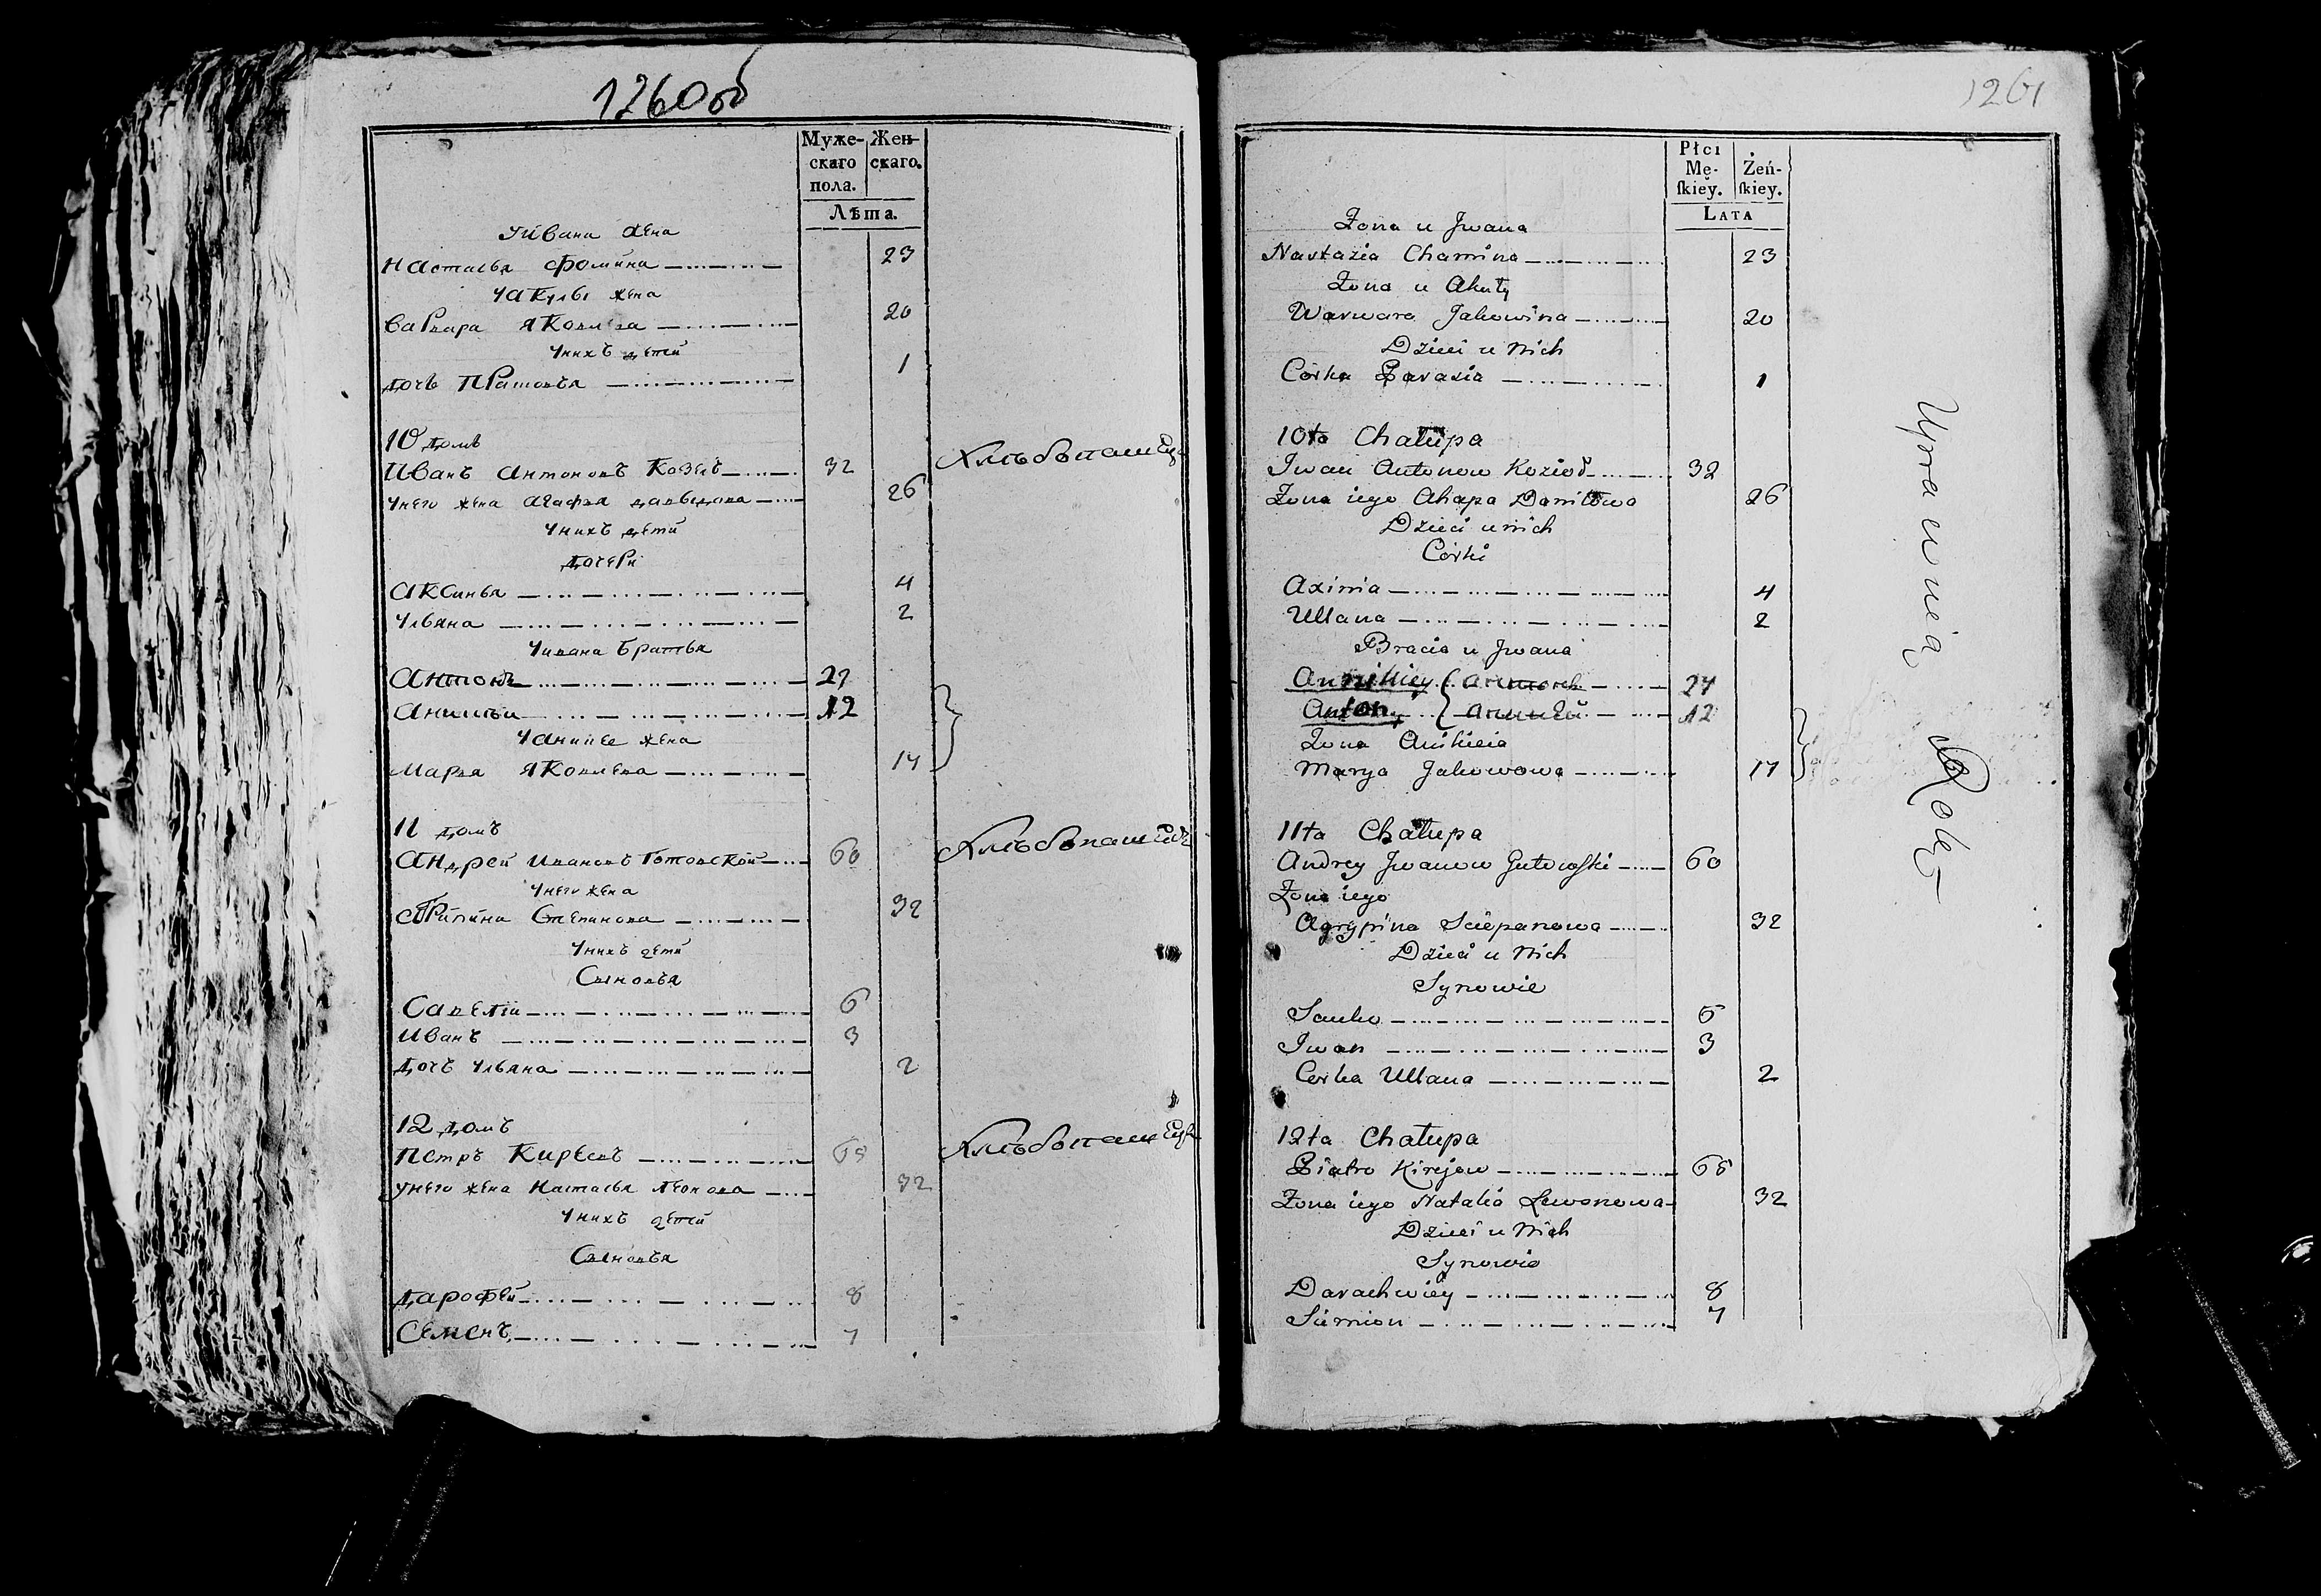 1260об
Муже-
скаго
пола.
Жен-
скаго.
Лѣта.
Уивана жена
Настасья Фомина 23
Уакулы жена
Варвара Яковлева 20
Унихъ детеи
дочь 1
10 домъ
Иванъ Антоновъ Козелъ 32
Хлѣбопашецъ
Унего жена Агафья давыдова 26
Унихъ дети
дочери
Аксинья 4
Ульяна 2
Уивана Братья
Антонъ
Аникеи 12
Уаникее жена
Марья Яковлева 17
11 домъ
Андреи Ивановъ Готовскои 60
Хлѣбопашецъ
Унего жена
Степанова 32
Унихъ дети
Сыновья
Савелеи 6
Иванъ 3
дочъ Ульяна 2
12 домъ
Петръ Киреевъ
Хлѣбопашецъ
Унего жена Наталья Леонова 32
Унихъ детеи
Сыновья
дарофеи 8
Семенъ 7
1261
Płci
Mę-
ſkiey.
Żeń-
ſkiey.
LATA
Żona u Jwana
Nastazia Chamina 23
Żona u Akuły
Warwara Jakowina 20
Dzieci u Nich
Córka Parasia 1
10ta Chałupa
Jwan Antonow Kozioł 32
Żona iego Ahapa Daniłowa 26
Dzieci u nich
Córki
Axinia 4
Ullana 2
Bracia u Jwana
Anton 12
Żona
Marya Jakowowa 17
11ta Chałupa
Andrey Jwanow Gutowſki 60
Żona iego
Agrypina Sciepanowa 32
Dzieci u Nich
Synowie
Sauko 6
Jwan 3
Corka Ullana 2
12ta Chałupa
Piatro Kirejow
Żona iego Natalia Lewonowa 32
Dzieci u Nich
Synowie
Darachwiey 8
Siemion 7
Uprawuią Rolę